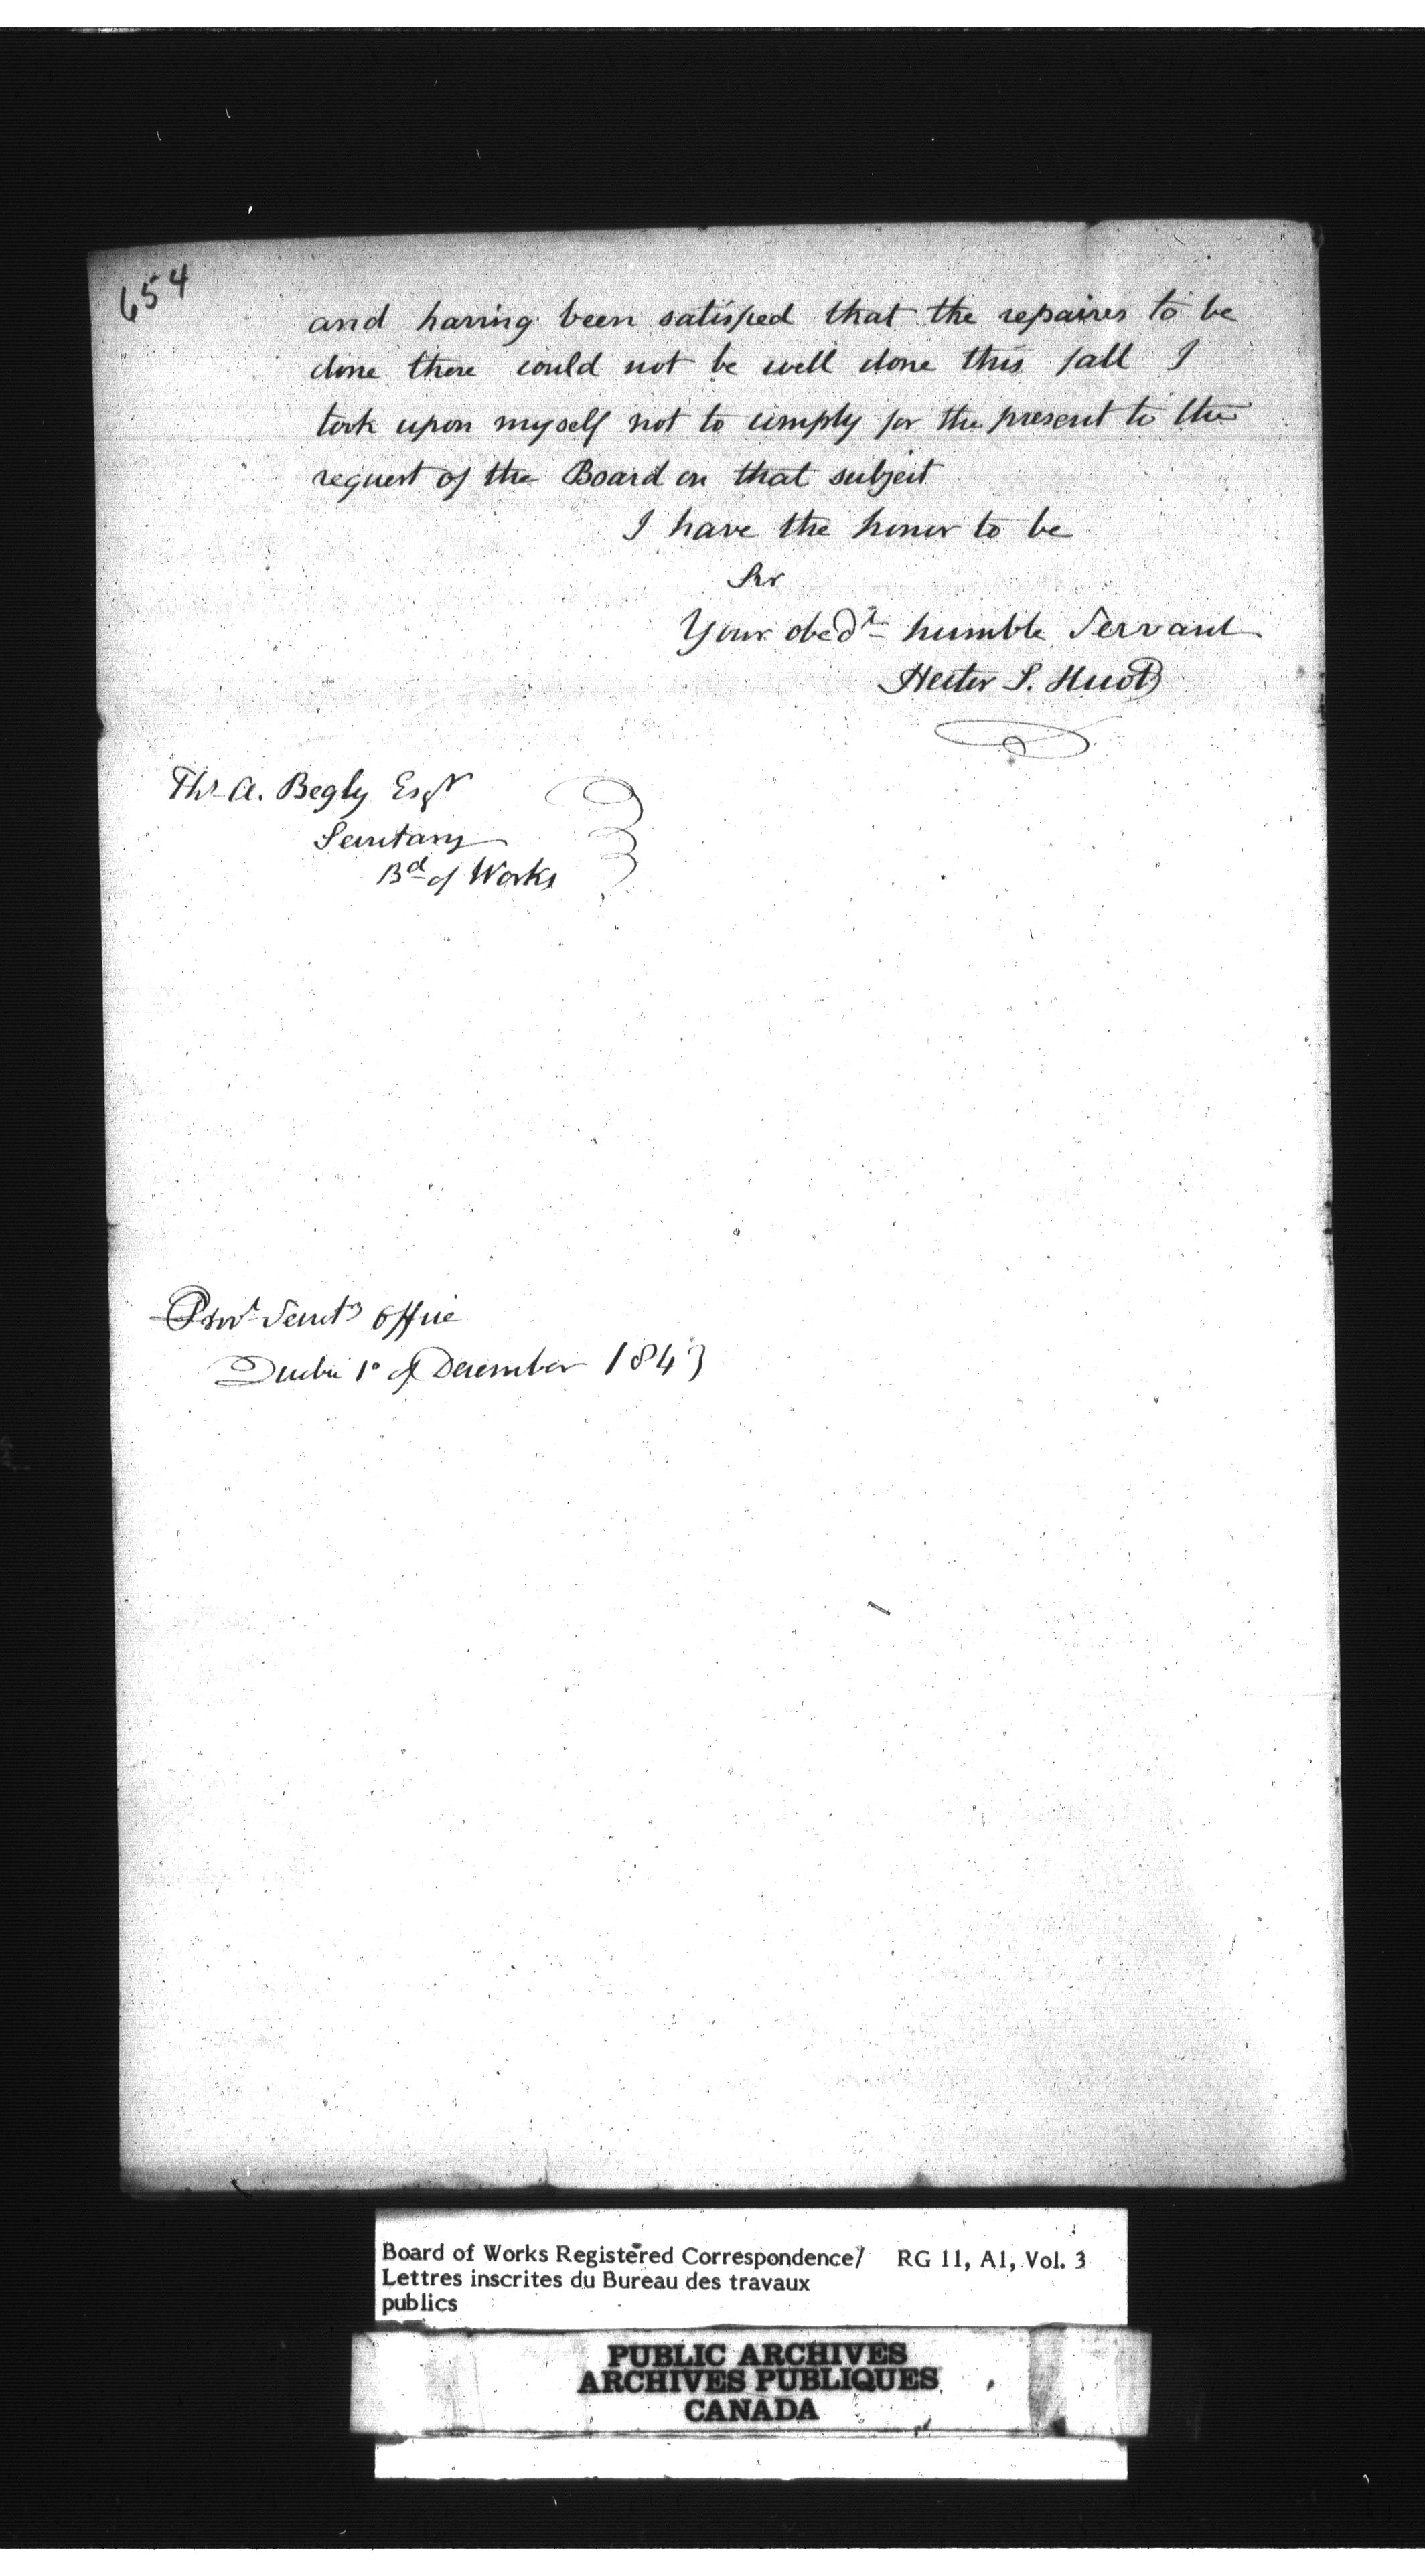 654
and having been satisfied that the repaires to be
done there could not be well done this fall I
took upon myself not to comply for the present to the
request of the Board on that subject
I have the honor to be
Sir
Your obedt humble Servant
Hector S. Huot
Ths A. Begly Esqr
Secretary
Bd of Works
Provl Secrets Office
Quebec 1º of December 1843
Board of Works Registered Correspondence/ RG 11, A1, Vol. 3
Lettres inscrites du Bureau des travaux
publics
PUBLIC ARCHIVES
ARCHIVES PUBLIQUES
CANADA